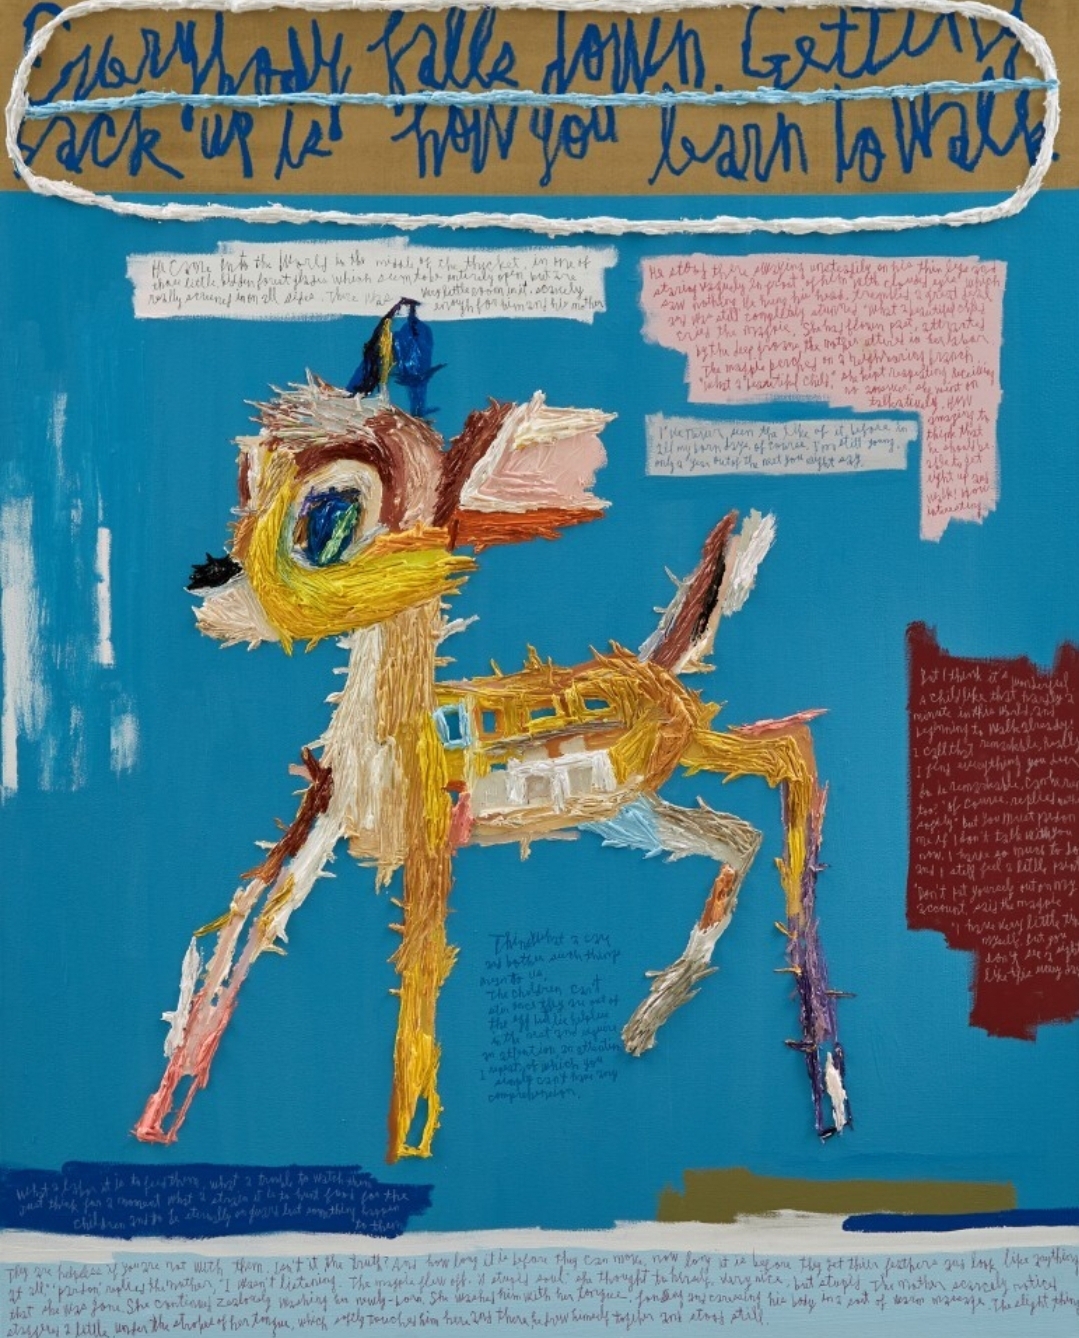 Everybody falls down. Getting
back up is how you learn to walk.
He came into the world in the middle of the thicket, in one of
those little, hidden forest glades which seem to be entirely open, but are
really screened in on all sides. There was very little room in it, scarcely
enough for him and his mother
He stood there, swaying unsteadily on his thin legs and
staring vaguely in front of him with clouded eyes which
saw nothing. He hung his head, trembled a great deal
and was still completely stunned. "What a beautiful child"
cried the magpie. She had flown past, attracted
by the deep groans the mother uttered in her labor
The magpie perched on a neighboring branch.
"What a beautiful child," she kept repeating. Receiving
no answer, she went on
talkatively. How
amazing to
think that
he should be
able to get
right up and
walk! How
interesting
I've never seen the like of it before in
all my born days. Of course, I'm still young,
only a year out of the nest you might say.
But I think it's wonderful
a child like that, hardly a
minute in this world and
beginning to walk already!
I call that remarkable. Really
I find everything you deer
do is remarkable. Can he run
too? "Of course," replied
softly" but you must pardon
me if I don't talk with you
now. I have so much to do
and I still feel a little faint
"Don't put yourself out on my
account, said the magpie
"I have very little time
myself. but you
don't see a sight
like this every day
Think what a care
and bother such things
mean to us.
The children can't
stir once they are out of
the egg but lie helpless
in the nest and require
an attention, an attention
I repeat, of which you
simply can't have any
comprehension.
What a labor it is to feed them, what a trouble to watch them
Just think for a moment what a strain it is to hunt food for the
children and to be eternally on guard lest something happen
to them
They are helpless if you are not with them. Isn't it the truth? And how long it is before they can move, how long it is before they get their feathers and look like anything
at all" "Pardon" replied the mother, "I wasn't listening. The magpie flew off. "A stupid soul" she thought to herself. very nice, but stupid. The mother scarcely noticed
that she was gone. She continued zealously washing her newly-born. She washed him with her tongue, fondling and caressing his body in a sort of warm massage. The slight thing
staggered a little. Under the strokes of her tongue, which softly touched him here and there, he drew himself together and stood still.